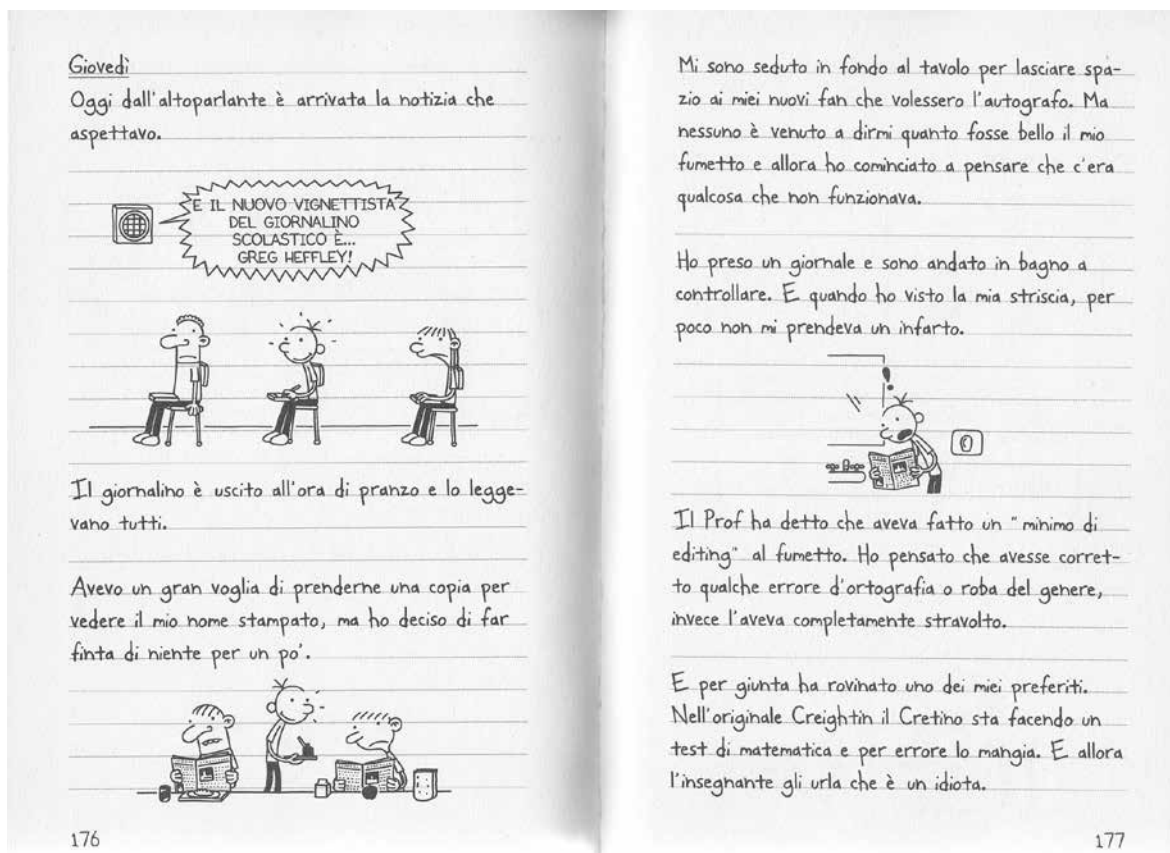 Giovedì
Oggi dall'altoparlante è arrivata la notizia che
aspettavo.
E IL NUOVO VIGNETTISTA
DEL GIORNALINO
SCOLASTICO È...
GREG HEFFLEY!
Il giornalino è uscito all'ora di pranzo e lo legge-
vano tutti.
Avevo un gran voglia di prenderne una copia per
vedere il mio nome stampato, ma ho deciso di far
finta di niente per un po'.
176
Mi sono seduto in fondo al tavolo per lasciare spa-
zio ai miei nuovi fan che volessero l'autografo. Ma
nessuno è venuto a dirmi quanto fosse bello il mio
fumetto e allora ho cominciato a pensare che c'era
qualcosa che non funzionava.
Ho preso un giornale e sono andato in bagno a
controllare. E quando ho visto la mia striscia, per
poco non mi prendeva un infarto.
!
Il Prof ha detto che aveva fatto un "minimo di
editing" al fumetto. Ho pensato che avesse corret-
to qualche errore d'ortografia o roba del genere,
invece l'aveva completamente stravolto.
E per giunta ha rovinato uno dei miei preferiti.
Nell'originale Creightin il Cretino sta facendo un
test di matematica e per errore lo mangia. E allora
l'insegnante gli urla che è un idiota.
177